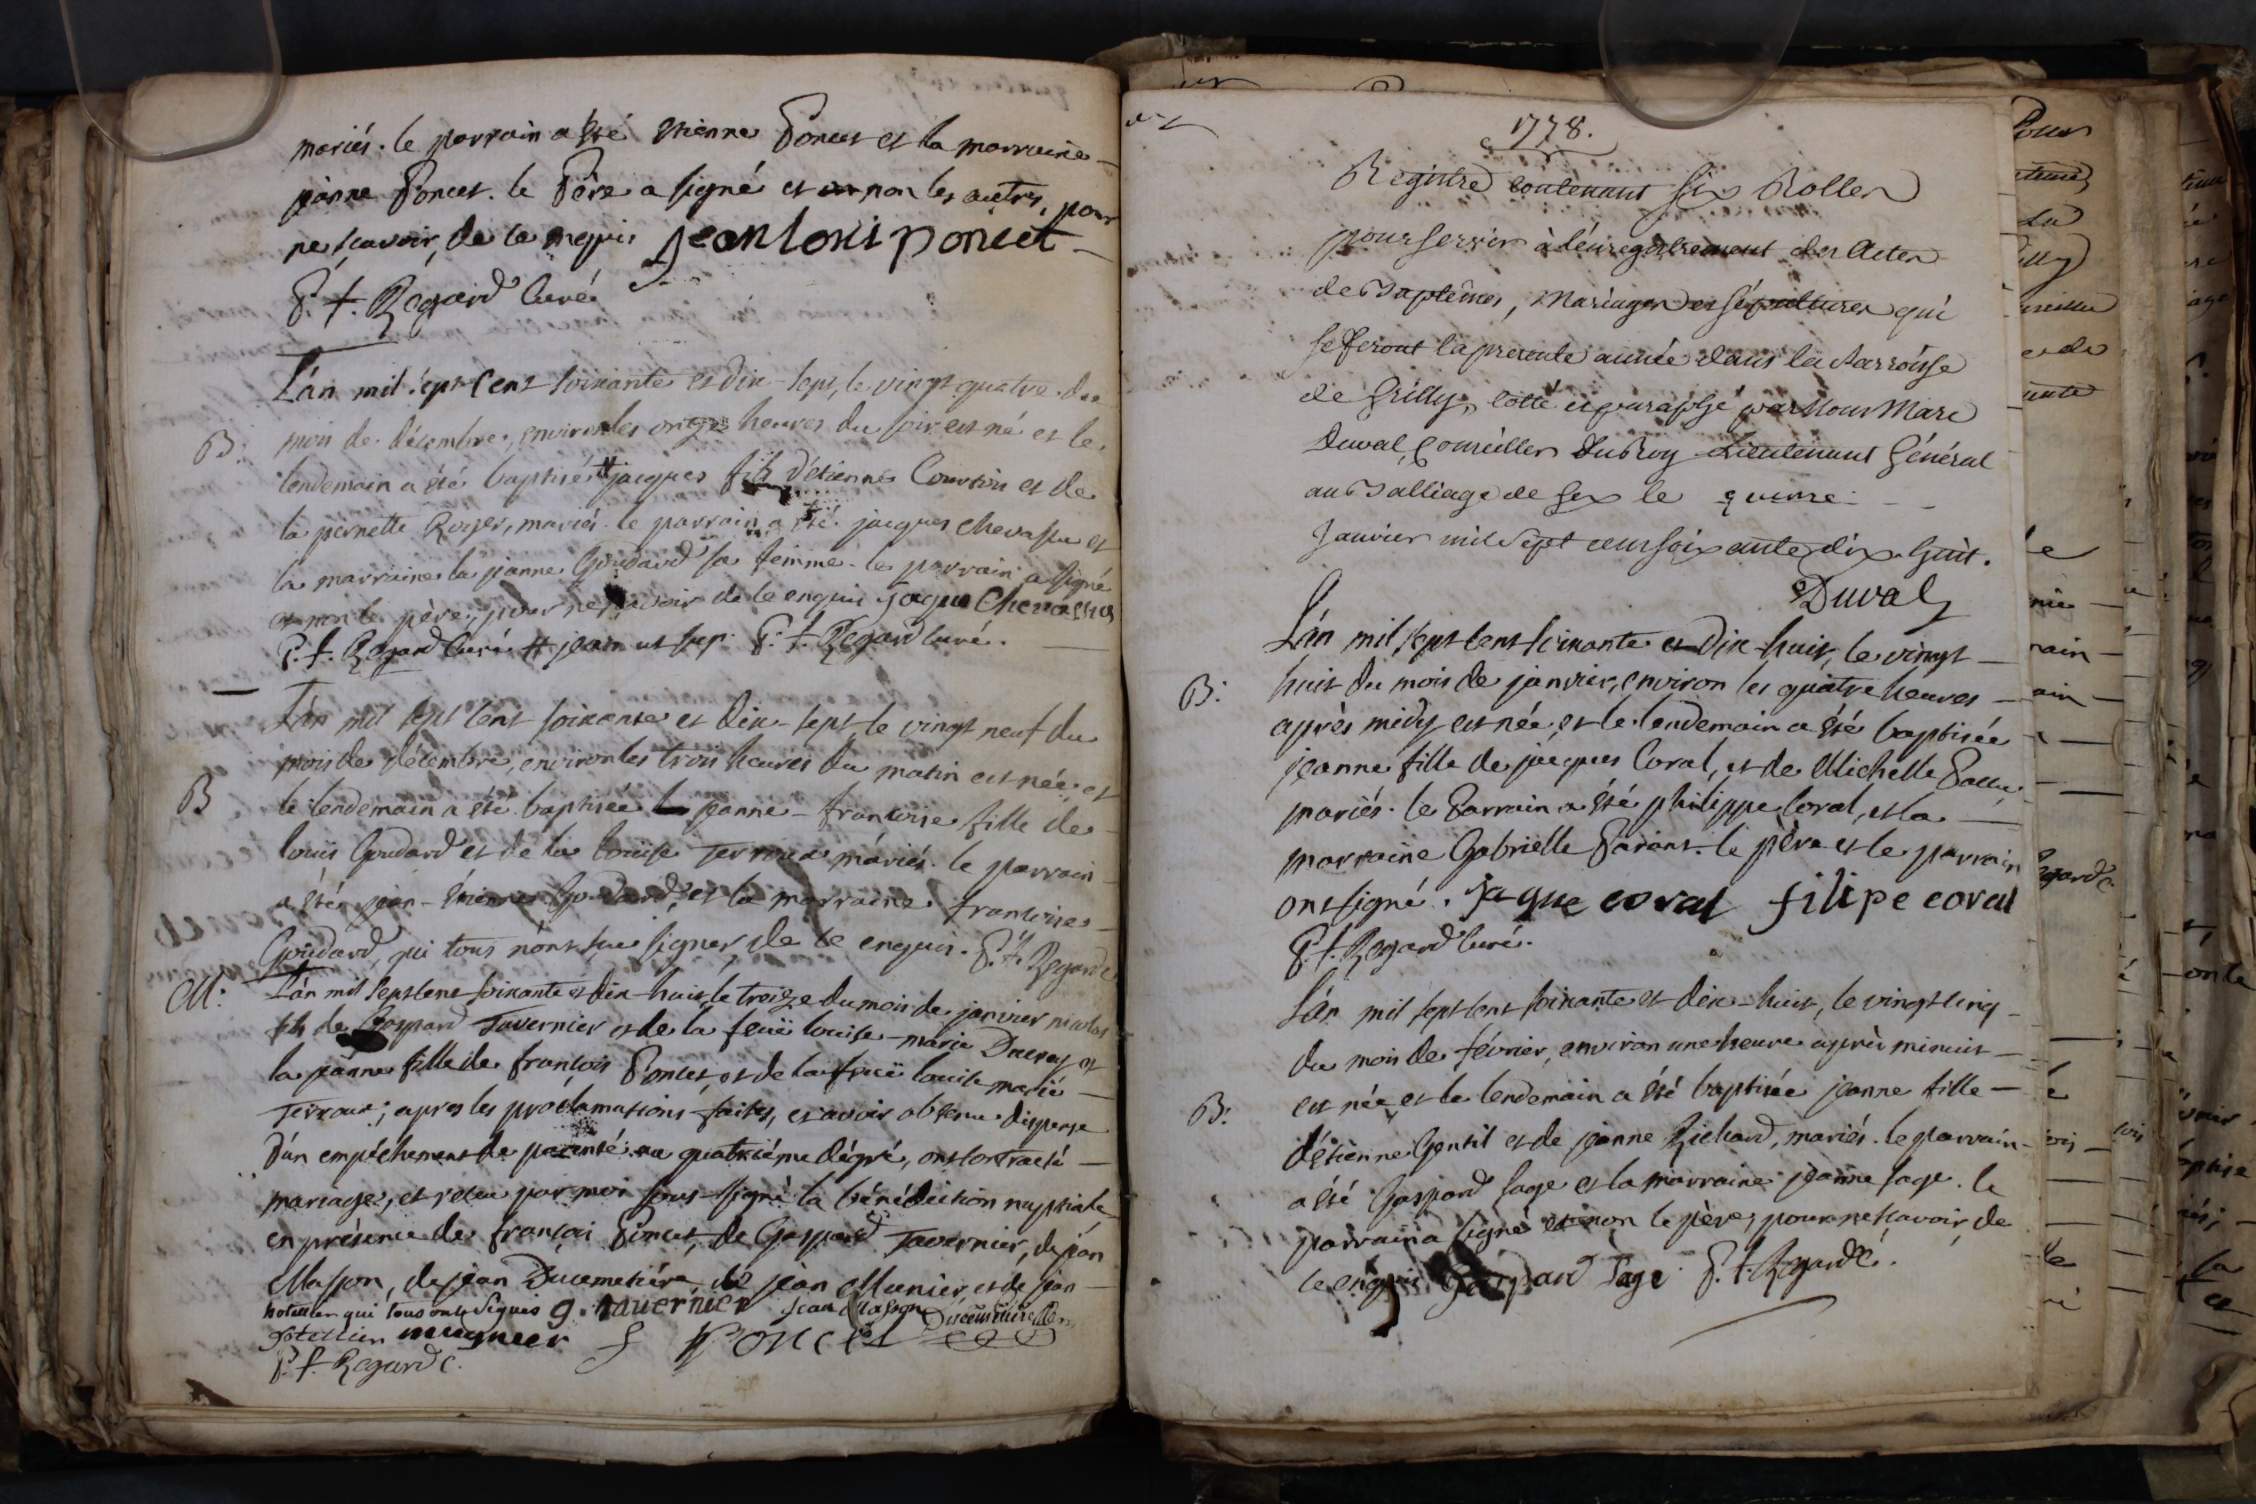 mariés. le parrain a été etienne Poncet et la marraine
jeanne Poncet. le Père a signé et non les autres, pour
ne scavoir, de ce enquis jean louis poncet
P. f. Regard Curé
L'an mil sept Cent soixante et dix-sept, le vingt quatre du
B: mois de décembre, environ les onze heures du soir est né et le
lendemain a été baptisé # jacques fils d'etienne Courtois et de
la pernette Roger, mariés. le parrain a été jacques Chevassu et
la marraine la jeanne Goudard sa femme. le parrain a signé
et non le père, pour ne scavoir de ce enquis jaque Chevassus
P. f. Regard Curé # jean ut sup. P. f. Regard curé.
L'an mil sept cent soixante et dix-sept le vingt neuf du
mois de décembre, environ les trois heures du matin est née et
B le lendemain a été baptisée jeanne-francoise fille de
louis Goudard et de la louise Terroux mariés. le parrain
a été jean-étienne Goudard, et la marraine francoise
Goudard, qui tous n'ont su signer, de ce enquis. P. f. Regard C
M: L'an mil sept cent soixante et dix-huit, le treize du mois de janvier nicolas
fils de Gaspard Tavernier et de la feuë louise-marie Ducret et
la jeanne fille de françois Poncet, et de la feuë louise marie
Terroux; apres les proclamations faites, et avoir obtenu dispense
d'un empêchement de parenté au quatriéme dégré, ont contracté
mariage, et recu par moi sous-signé la bénédiction nuptiale
en présence de françois Poncet, de Gaspard Tavernier, de jean
Masson, de jean Ducimetiére de jean Munier, et de jean
hotellier qui tous ont signés g. tavernier jean Masson Ducimetiere
hotellier mugnier f Poncet
P. f. Regard C.
1778.
Registre contenant six Rolles
pour servir à l'enregistrement des Actes
de Baptêmes, Mariages et sépultures qui
se feront la presente année dans la Parroisse
de Grilly, cotté et paraphé par Nous Marc
Duval, Conseiller du Roy Lieutenant Général
au Balliage de Gex le quinze
Janvier mil Sept cens soixante dix huit.
Duval
L'an mil sept cent soixante et dix-huit, le vingt
B: huit du mois de janvier, environ les quatre heures
après midy est née, et le lendemain a été baptisée
jeanne fille de jacques Coral, et de Michelle
mariés. le Parrain a été philippe Coral, et la
marraine Gabrielle Parant. le père et le parrain
ont signé. jaque coral filipe coral
P. f. Regard Curé.
L'an mil sept cent soixante et dix-huit, le vingt cinq
du mois de février, environ une heure après minuit
B: est née et le lendemain a été baptisée jeanne fille
d'étienne Gentil et de jeanne Richard, mariés. le parrain
a été Gaspard Sage et la marraine jeanne sage. le
parrain a signé et non le père, pour ne scavoir, de
ce enquis Gaspard Sage P. f. Regard C.